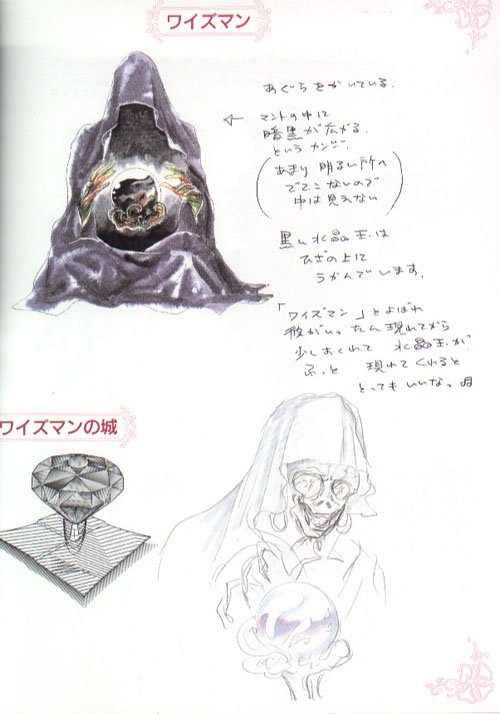 ワイズマン
あぐらをかいている.
← マントの中に
暗黒が広がる.
というカンジ.
(あまり 明るい所へ
でてこないので
中は見えない)
黒い水晶玉は
ひざの上に
うかんでいます.
「ワイズマン」とよばれ
彼がいったん現れてから
少しおくれて 水晶玉が
ふっと 現れてくれると
とってもいいなっ
ワイズマンの城